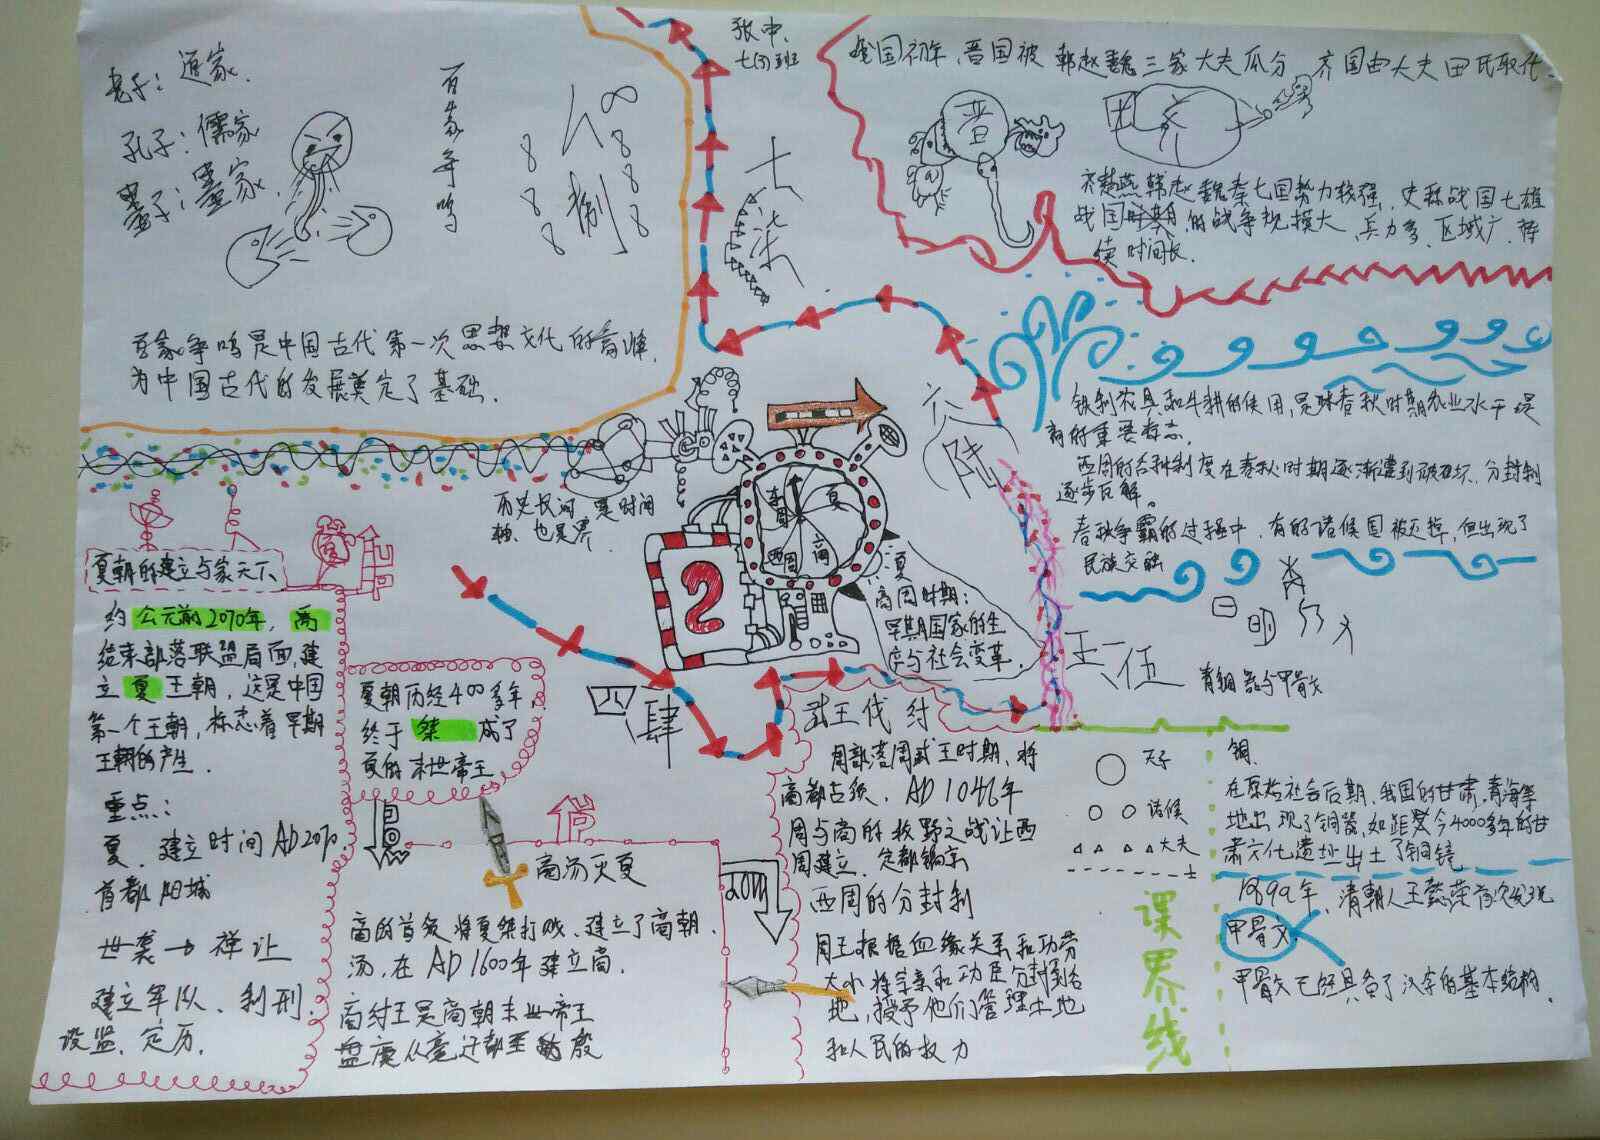 老子：道家.
孔子：儒家
墨子：墨家.
百家争鸣
八捌
百家争鸣是中国古代第一次思想文化的高峰.
为中国古代的发展奠定了基础.
七柒
战国初年,晋国被韩赵魏三家大夫瓜分 齐国由大夫田氏取代.
晋
齐楚燕韩赵魏秦七国势力较强,史称战国七雄
战国时期的战争规模大,兵力多,区域广.持
续时间长.
六陆
铁制农具和牛耕的使用,是味春秋时期农业水平提
高的重要标志.
西周的各种制度在春秋时期逐渐遭到破坏.分封制
逐步瓦解。
春秋争霸的过程中,有的诸候国被灭掉,但出现了
民族交融
王一伍
青铜器与甲骨文
历史长河 是时间
轴、也是界
夏
商
西周
东周
2
夏
商周时期:
早期国家的生
产与社会变革.
夏朝的建立与家天下
约公元前2070年,禹
结束部落联盟局面,建
立夏王朝,这是中国
第一个王朝,标志着早期
王朝的产生.
重点:
夏. 建立时间AD2070.
首都阳城
世袭→禅让
建立军队、制刑.
设监、定历.
夏朝历经400多年,
终于桀 成了
夏的末世帝王
四肆
商汤灭夏
商的首领将夏桀打败,建立了商朝.
汤,在AD1600年建立商.
商纣王是商朝末世帝王
盘庚从亳迁都至殷
武王伐纣
周部落周武王时期,将
AD1046年
周与商的牧野之战让西
周建立,定都镐京
西周的分封制
周王根据血缘关系和功劳
大小将宗亲和功臣分封到各
地,授予他们管理土地
和人民的权力
天子
诸候
大夫
士
课界线
铜.
在原始社会后期,我国的甘肃,青海等
地出现了铜器,如距今4000多年的甘
肃文化遗址出土了铜镜
1899年,清朝人王懿荣首次发现
甲骨文.
甲骨文已经具备了汉字的基本结构.